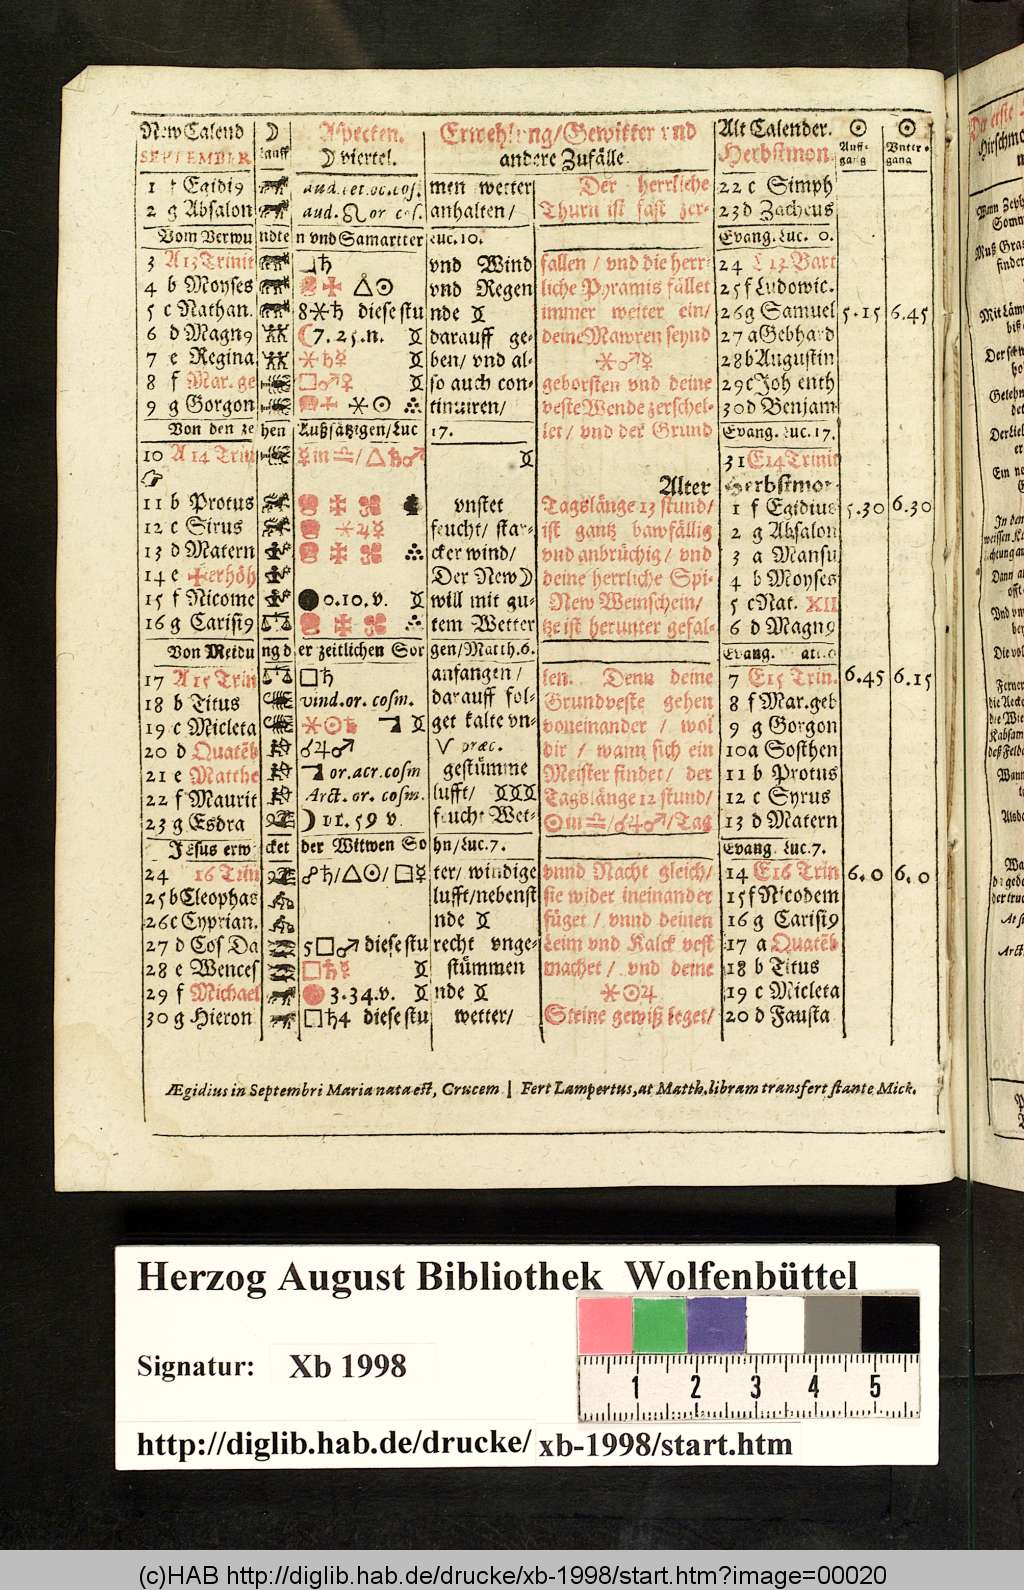 New Calend ☽ Aspecten. Erwehlung/Gewitter vnd Alt Calender. ☉ ☉
SEPTEMBER lauff ☽ viertel. andere Zufälle Herbstmon. Auff-gang Vnter-gang
1 f Egidi9 men wetter Der herrliche 22 c Simph
2 g Absalon aud. ☊ or cos. anhalten/ Thurn ist fast zer- 23 d Zacheus
Vom Verwundten vnd Samariter Luc. 10. Evang. Luc.
3 A 13 Trinit □♄ vnd Wind fallen / vnd die herr- 24 E 13 Bart
4 b Moyses △☉ vnd Regen liche Pyramis fället 25 f Ludowic.
5 c Nathan. 8 ⚹ ♄ diese stunde immer weiter ein/ 26 g Samuel 5.15 6.45
6 d Magn9 ☾ 7. 25. n. darauff ge- deine Mawren seynd 27 a Gebhard
7 e Regina ⚹♄☿ ben/ vnd al- ⚹♂☿ 28 b Augustin
8 f Mar. ge □♂♀ so auch con- geborsten vnd deine 29 c Joh enth
9 g Gorgon ⚹☉ tinuiren/ veste Wende zerschel- 30 d Benjam
Von den zehen Außsätzigen/Luc 17. let/ vnd der Grund Evang. Luc. 17.
10 A 14 Trin ☿ in ♎/△♄♂ 31 E 14 Trinit
Alter Herbstmon.
11 b Protus vnstet Tagslänge 13 stund/ 1 f Egidius 5.30 6.30
12 c Sirus ⚹♃☿ feucht/ star- ist gantz bawfällig 2 g Absalon
13 d Matern cker wind/ vnd anbrüchig/ vnd 3 a Mansu
14 e ✠erhöh Der New☽ deine herrliche Spi- 4 b Moyses
15 f Nicome ● 0.10. v. will mit gu- New Weinschein/ 5 c Nat. XII
16 g Carisi9 tem Wetter tze ist herunter gefal- 6 d Magn9
Von Meidung der zeitlichen Sorgen/Matth. 6. Evang.
17 A 15 Trin □♄ anfangen/ len. Denn deine 7 E 15 Trin. 6.45 6.15
18 b Titus vind. or. cosm. darauff fol- Grundveste gehen 8 f Mar. geb
19 c Micleta ⚹☉♄ get kalte vn- voneinander / wol 9 g Gorgon
20 d Quatēb ☌♃♂ V præc. dir / wann sich ein 10 a Sosthen
21 e Matthe or. acr. cosm gestümme Meister findet/ der 11 b Protus
22 f Maurit Arct. or. cosm. lufft/ Tagslänge 12 stund/ 12 c Syrus
23 g Esdra ☽ 11. 59 v. feucht Wet- ☉ in ♎/☌♃♂/Tag 13 d Matern
Jesus erwecket der Wittwen Sohn/Luc. 7. Evang. Luc. 7.
24 16 Trin ☍♄/△☉/□☿ ter/ windige vnnd Nacht gleich/ 14 E 16 Trin 6. 0 6. 0
25 b Cleophas lufft/nebenst sie wider ineinander 15 f Nicodem
26 c Cyprian. füget / vnnd deinen 16 g Carisi9
27 d Cos Da 5 □ ♂ diese stunde recht vnge- Leim vnd Kalck vest 17 a Quatēb
28 e Wences □♄☿ stümmen machet / vnd deine 18 b Titus
29 f Michael 3. 34. v. ⚹☉♃ 19 c Micleta
30 g Hieron □♄4 diese stunde wetter/ Steine gewiß leget/ 20 d Fausta
Ægidius in Septembri Maria nata est, Crucem | Fert Lampertus, at Matth. libram transfert stante Mich.
Herzog August Bibliothek Wolfenbüttel
Signatur: Xb 1998
1 2 3 4 5
http://diglib.hab.de/drucke/ xb-1998/start.htm
(c)HAB http://diglib.hab.de/drucke/xb-1998/start.htm?image=00020